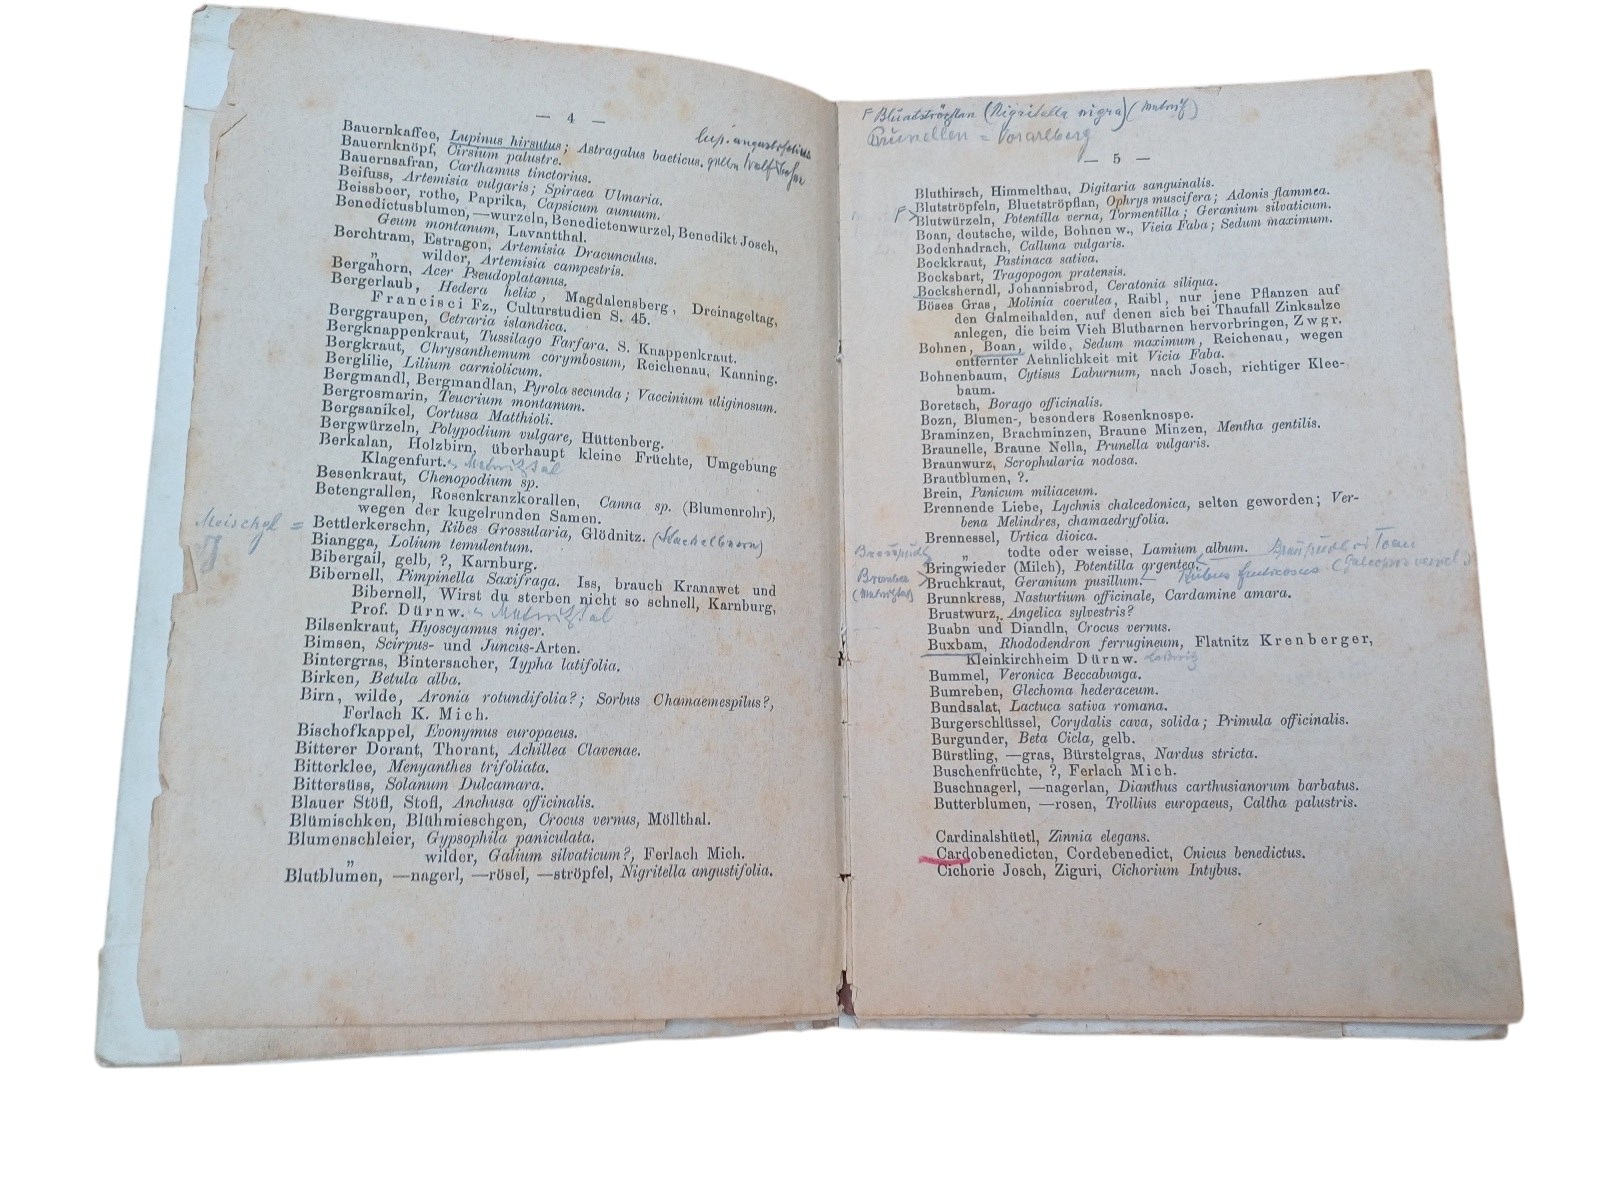 — 4 —
Bauernkaffee, Lupinus hirsutus; Astragalus baeticus.
Bauernknöpf, Cirsium palustre.
Bauernsafran, Carthamus tinctorius.
Beifuss, Artemisia vulgaris; Spiraea Ulmaria.
Beissbeer, rothe, Paprika, Capsicum annuum.
Benedictusblumen, —wurzeln, Benedictenwurzel, Benedikt Josch,
Geum montanum, Lavantthal.
Berchtram, Estragon, Artemisia Dracunculus.
„ wilder, Artemisia campestris.
Bergahorn, Acer Pseudoplatanus.
Bergerlaub, Hedera helix, Magdalensberg, Dreinageltag,
Francisci Fz., Culturstudien S. 45.
Berggraupen, Cetraria islandica.
Bergknappenkraut, Tussilago Farfara. S. Knappenkraut.
Bergkraut, Chrysanthemum corymbosum, Reichenau, Kanning.
Berglilie, Lilium carniolicum.
Bergmandl, Bergmandlan, Pyrola secunda; Vaccinium uliginosum.
Bergrosmarin, Teucrium montanum.
Bergsanikel, Cortusa Matthioli.
Bergwürzeln, Polypodium vulgare, Hüttenberg.
Berkalan, Holzbirn, überhaupt kleine Früchte, Umgebung
Klagenfurt.
Besenkraut, Chenopodium sp.
Betengrallen, Rosenkranzkorallen, Canna sp. (Blumenrohr),
wegen der kugelrunden Samen.
Bettlerkerschn, Ribes Grossularia, Glödnitz.
Biangga, Lolium temulentum.
Bibergail, gelb, ?, Karnburg.
Bibernell, Pimpinella Saxifraga. Iss, brauch Kranawet und
Bibernell, Wirst du sterben nicht so schnell, Karnburg,
Prof. Dürnw.
Bilsenkraut, Hyoscyamus niger.
Bimsen, Scirpus- und Juncus-Arten.
Bintergras, Bintersacher, Typha latifolia.
Birken, Betula alba.
Birn, wilde, Aronia rotundifolia?; Sorbus Chamaemespilus?,
Ferlach K. Mich.
Bischofkappel, Evonymus europaeus.
Bitterer Dorant, Thorant, Achillea Clavenae.
Bitterklee, Menyanthes trifoliata.
Bittersüss, Solanum Dulcamara.
Blauer Stöfl, Stofl, Anchusa officinalis.
Blümischken, Blühmieschgen, Crocus vernus, Möllthal.
Blumenschleier, Gypsophila paniculata.
„ wilder, Galium silvaticum?, Ferlach Mich.
Blutblumen, —nagerl, —rösel, —ströpfel, Nigritella angustifolia.
(Nigritella nigra)
= Vorarlberg
— 5 —
Bluthirsch, Himmelthau, Digitaria sanguinalis.
Blutströpfeln, Bluetströpflan, Ophrys muscifera; Adonis flammea.
Blutwürzeln, Potentilla verna, Tormentilla; Geranium silvaticum.
Boan, deutsche, wilde, Bohnen w., Vicia Faba; Sedum maximum.
Bodenhadrach, Calluna vulgaris.
Bockkraut, Pastinaca sativa.
Bocksbart, Tragopogon pratensis.
Bocksherndl, Johannisbrod, Ceratonia siliqua.
Böses Gras, Molinia coerulea, Raibl, nur jene Pflanzen auf
den Galmeihalden, auf denen sich bei Thaufall Zinksalze
anlegen, die beim Vieh Blutharnen hervorbringen, Zwgr.
Bohnen, Boan, wilde, Sedum maximum, Reichenau, wegen
entfernter Aehnlichkeit mit Vicia Faba.
Bohnenbaum, Cytisus Laburnum, nach Josch, richtiger Klee-
baum.
Boretsch, Borago officinalis.
Bozn, Blumen-, besonders Rosenknospe.
Braminzen, Brachminzen, Braune Minzen, Mentha gentilis.
Braunelle, Braune Nella, Prunella vulgaris.
Braunwurz, Scrophularia nodosa.
Brautblumen, ?.
Brein, Panicum miliaceum.
Brennende Liebe, Lychnis chalcedonica, selten geworden; Ver-
bena Melindres, chamaedryfolia.
Brennessel, Urtica dioica.
„ todte oder weisse, Lamium album.
Bringwieder (Milch), Potentilla argentea.
Bruchkraut, Geranium pusillum.
Brunnkress, Nasturtium officinale, Cardamine amara.
Brustwurz, Angelica sylvestris?
Buabn und Diandln, Crocus vernus.
Buxbam, Rhododendron ferrugineum, Flatnitz Krenberger,
Kleinkirchheim Dürnw.
Bummel, Veronica Beccabunga.
Bumreben, Glechoma hederaceum.
Bundsalat, Lactuca sativa romana.
Burgerschlüssel, Corydalis cava, solida; Primula officinalis.
Burgunder, Beta Cicla, gelb.
Bürstling, —gras, Bürstelgras, Nardus stricta.
Buschenfrüchte, ?, Ferlach Mich.
Buschnagerl, —nagerlan, Dianthus carthusianorum barbatus.
Butterblumen, —rosen, Trollius europaeus, Caltha palustris.
Cardinalshüetl, Zinnia elegans.
Cardobenedicten, Cordebenedict, Cnicus benedictus.
Cichorie Josch, Ziguri, Cichorium Intybus.